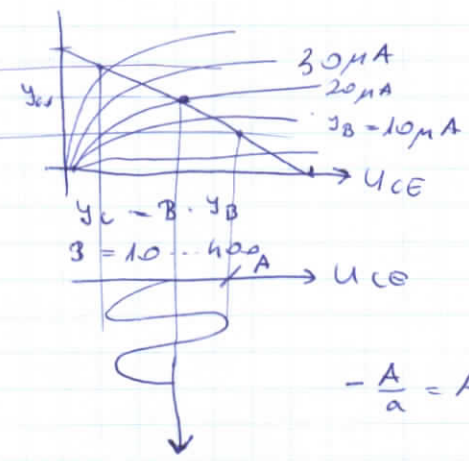 30μA
20μA
y_B = 10μA
U_CE
y_C = B · y_B
B = 10 ... 400
A
U_CE
- A/a = A